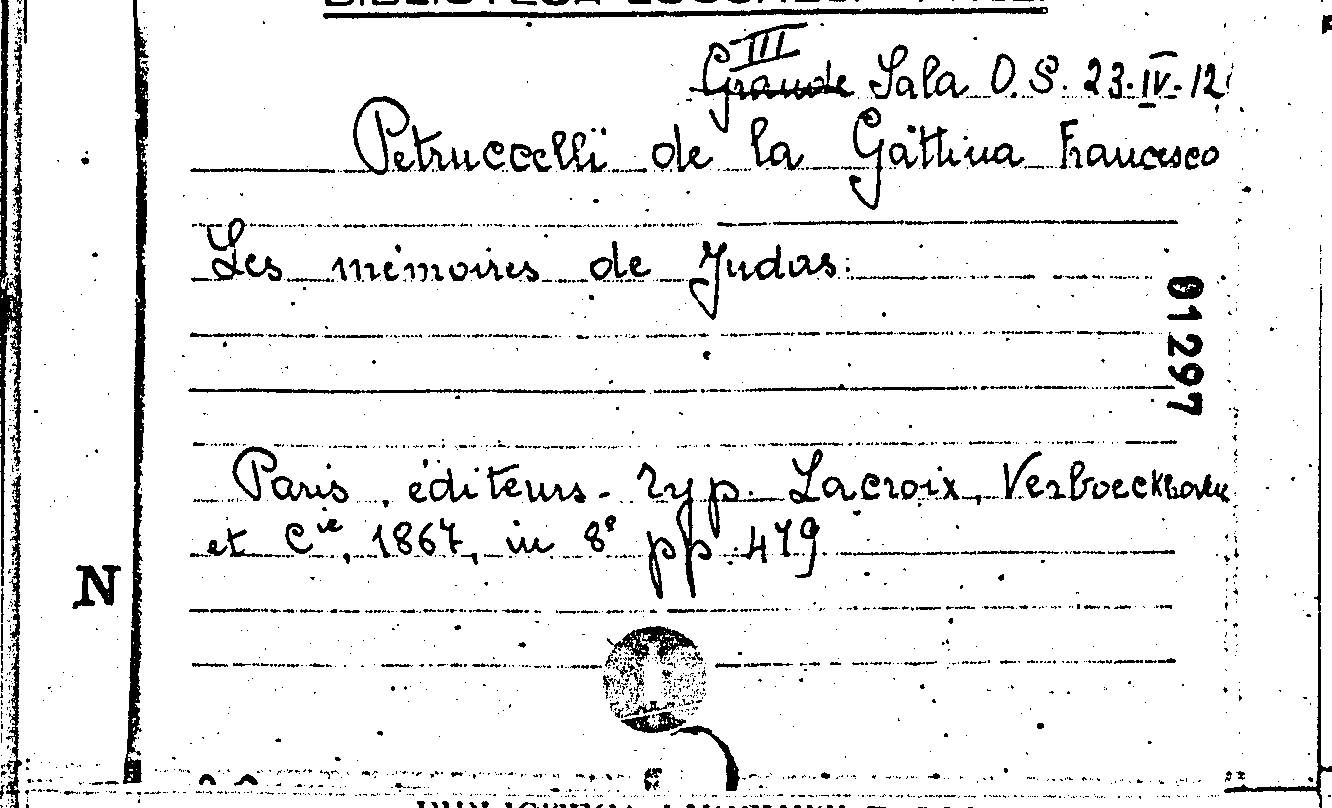 III
Grande Sala O.S. 23.IV.12
Petruccelli de la Gattina Francesco
Les mémoires de Judas.
01297
Paris, éditeurs. Typ. Lacroix, Verboeckhoven
et Cie, 1867, in 8° pp. 479
N